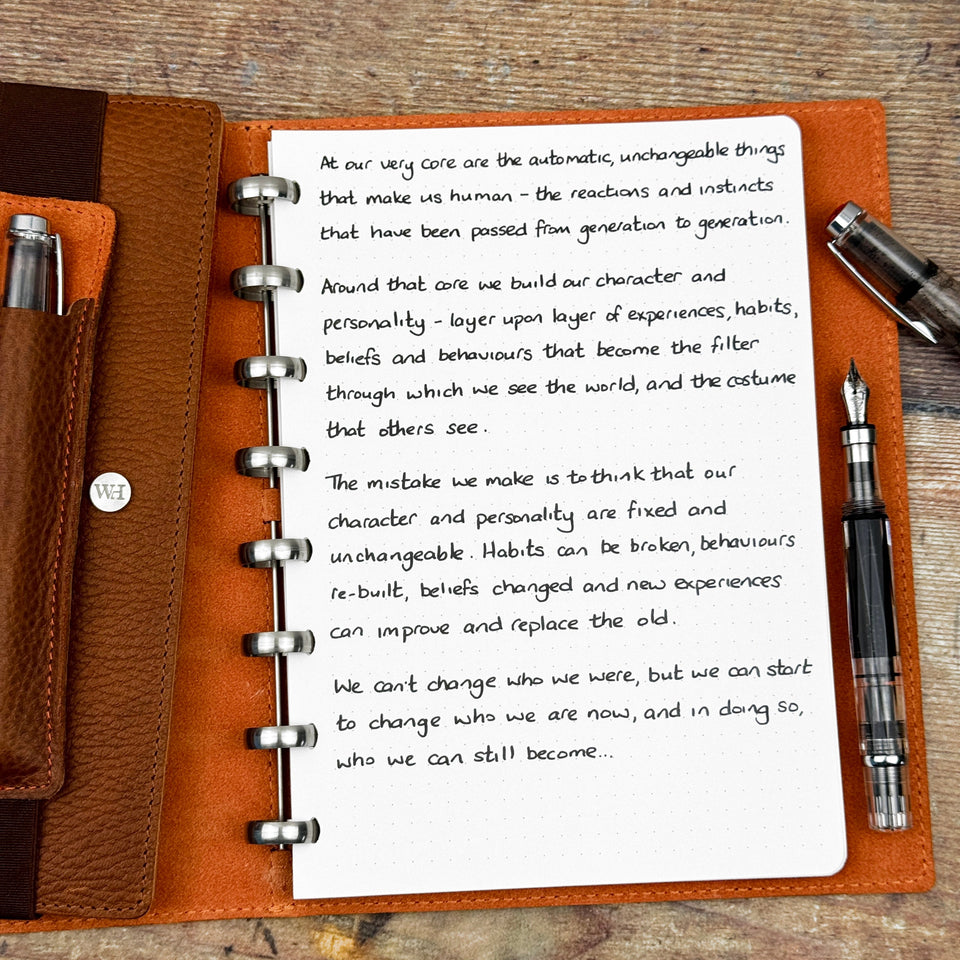 At our very core are the automatic, unchangeable things
that make us human - the reactions and instincts
that have been passed from generation to generation.
Around that core we build our character and
personality - layer upon layer of experiences, habits,
beliefs and behaviours that become the filter
through which we see the world, and the costume
that others see.
The mistake we make is to think that our
character and personality are fixed and
unchangeable. Habits can be broken, behaviours
re-built, beliefs changed and new experiences
can improve and replace the old.
We can't change who we were, but we can start
to change who we are now, and in doing so,
who we can still become...
WH